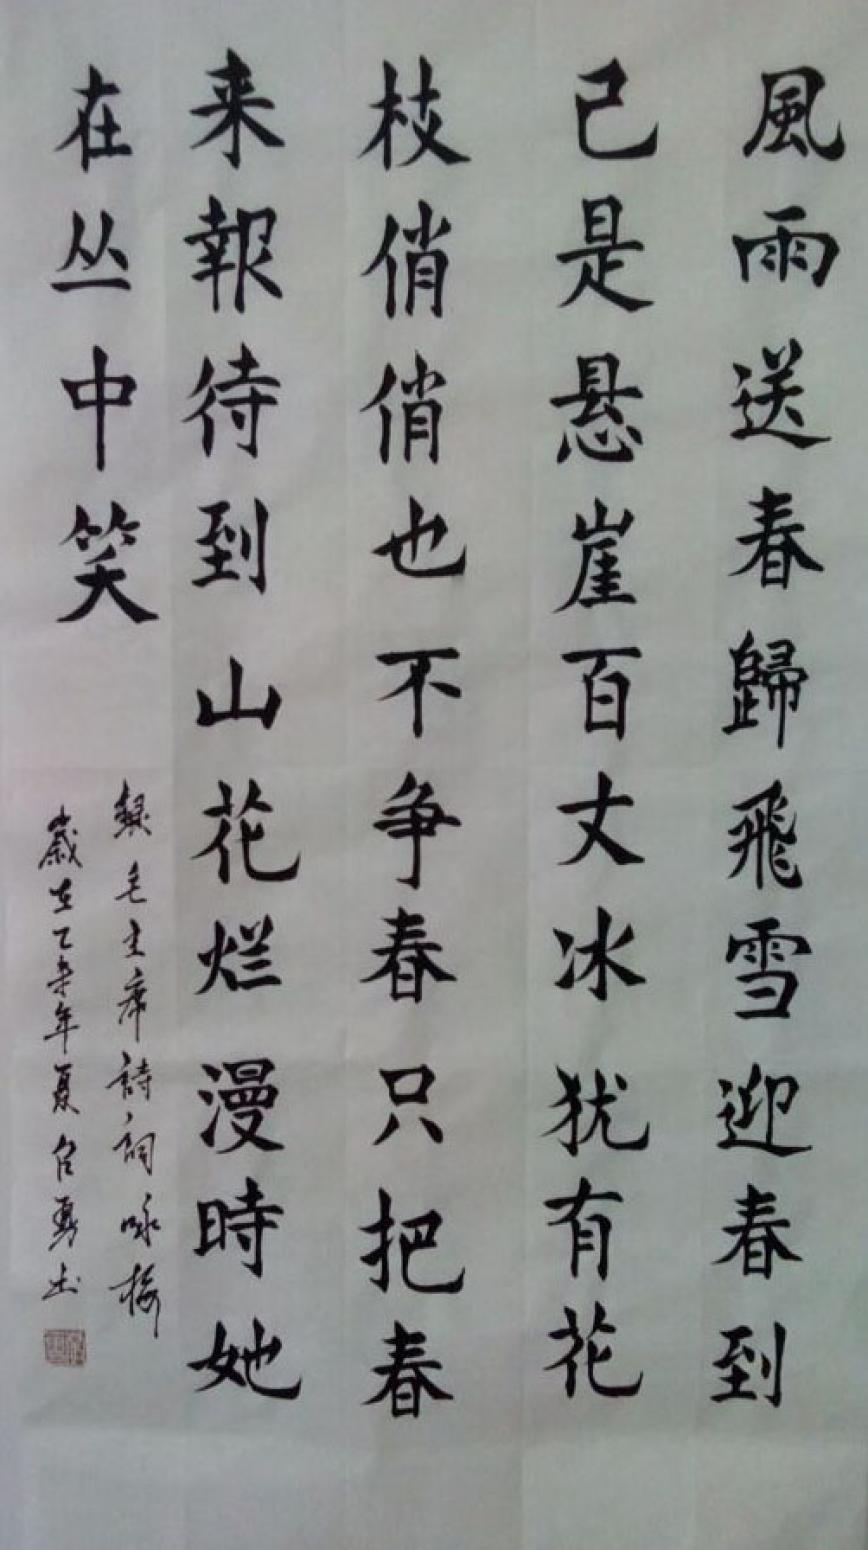 風雨送春歸飛雪迎春到
已是悬崖百丈冰犹有花
枝俏俏也不争春只把春
来報待到山花烂漫時她
在丛中笑
録毛主席詩詞咏梅
歲在乙未年夏召勇书